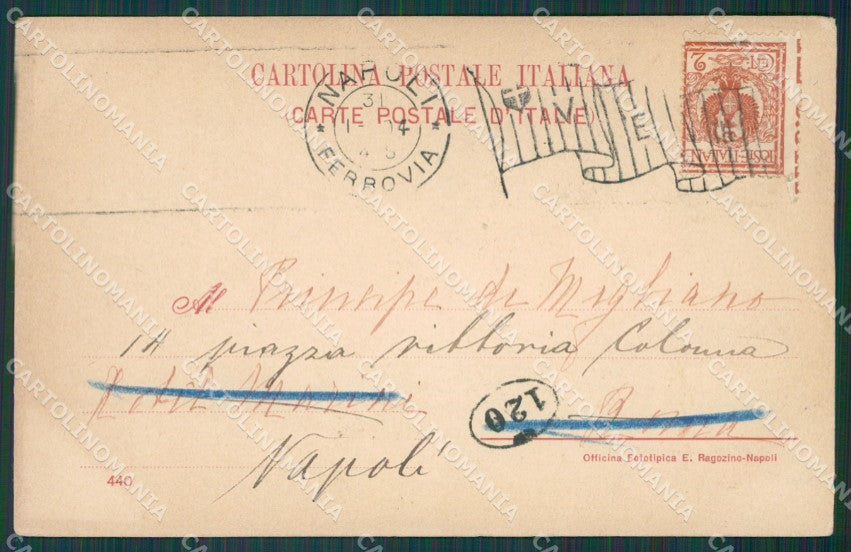 CARTOLINA POSTALE ITALIANA
(CARTE POSTALE D'ITALIE)
NAPOLI
31
1-04
FERROVIA
V E
CENT 2
POSTE ITALIANE
Al Principe di Migliano
14 piazza vittoria Colonna
Hotel Marini
120
Roma
Napoli
Officina Fototipica E. Ragozino-Napoli
440
CARTOLINOMANIA